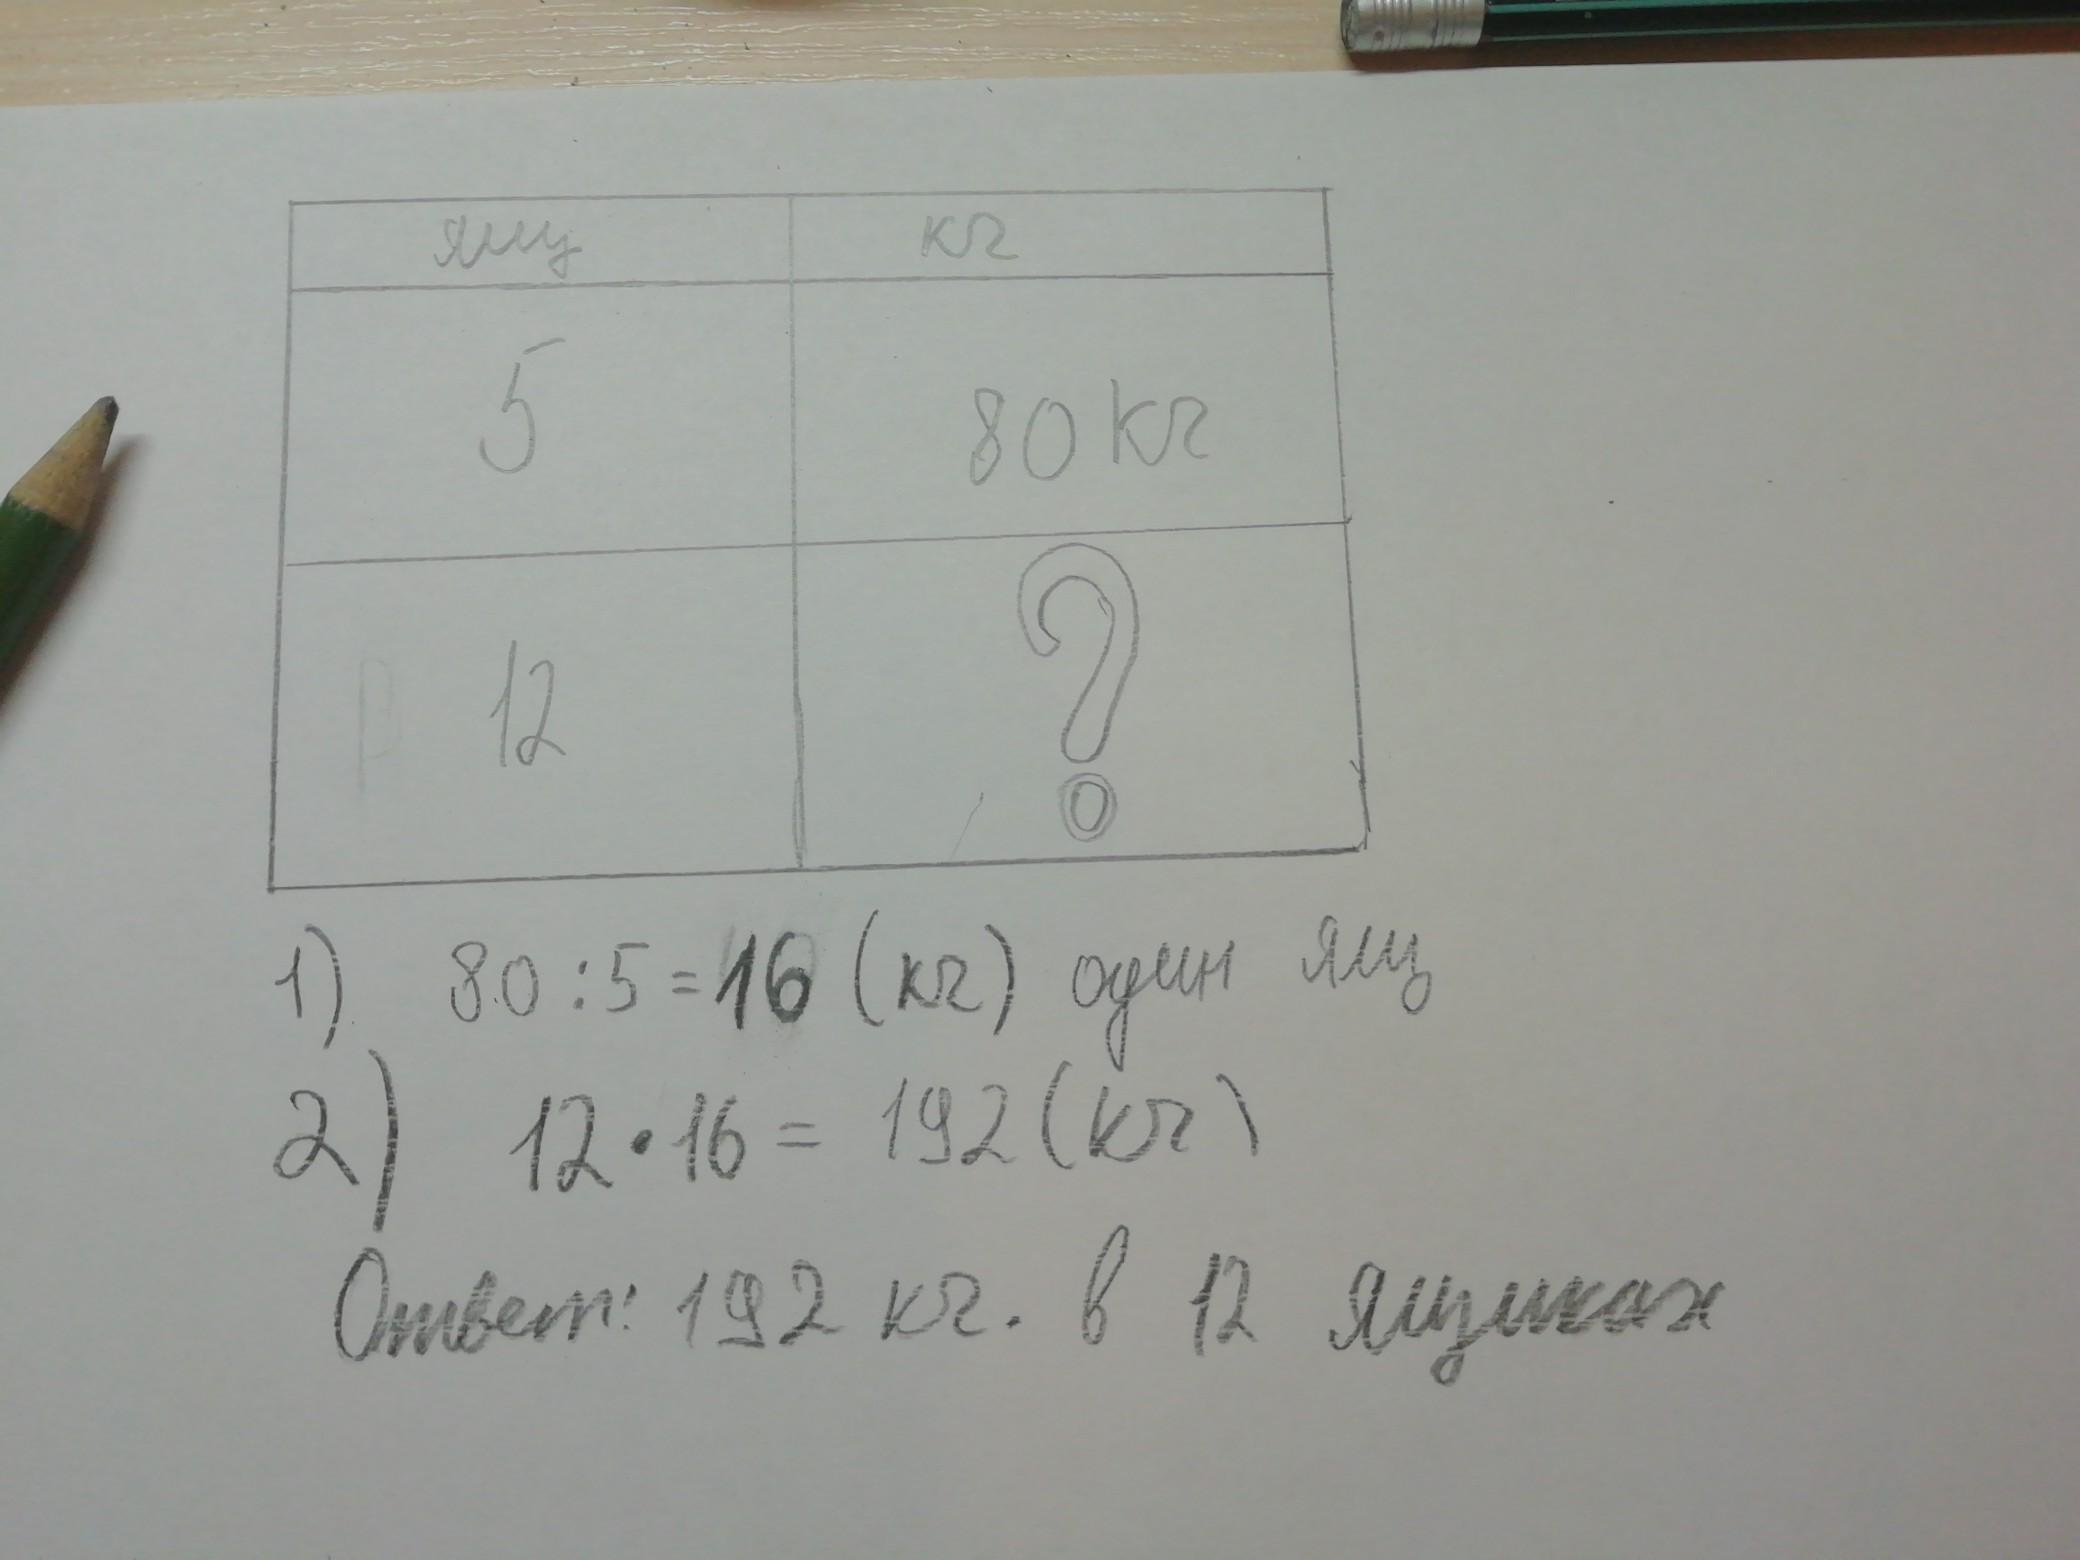 ящ кг
5 80 кг
12 ?
1) 80:5=16 (кг) один ящ
2) 12·16= 192(кг)
Ответ: 192 кг. в 12 ящиках